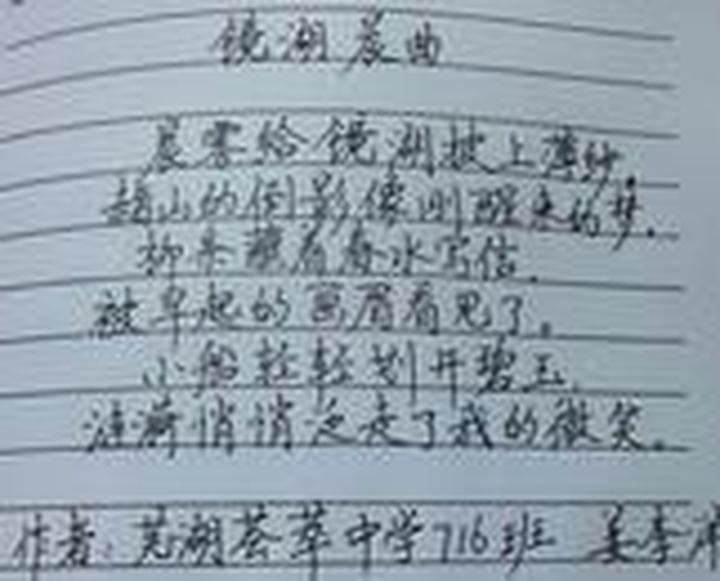 镜湖晨曲
晨雾给镜湖披上薄纱,
赭山的倒影像刚醒来的梦.
柳条蘸着春水写信.
被早起的画眉看见了。
小船轻轻划开碧玉.
涟漪悄悄泛走了我的微笑。
作者:芜湖荟萃中学716班 姜李